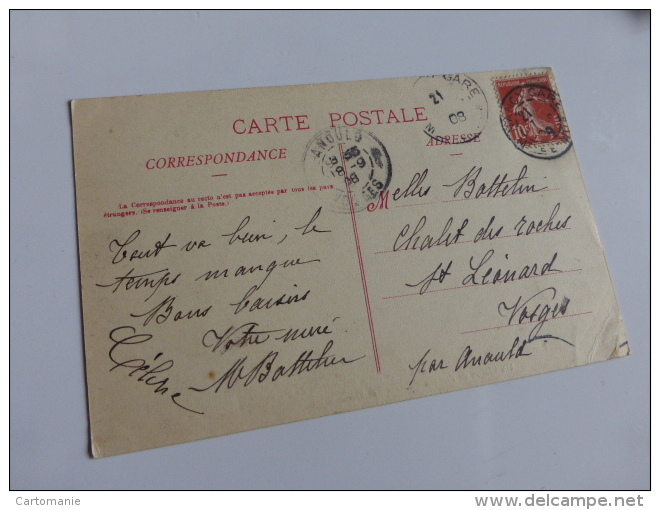 CARTE POSTALE
CORRESPONDANCE
ADRESSE
La Correspondance au recto n'est pas acceptée par tous les pays
étrangers. (Se renseigner à la Poste.)
Tout va bien, le
temps manque
Bons baisers
Votre mère
M Battelin
Melles Battelin
Chalet des roches
St Léonard
Vosges
par Anould
GARE
21
08
10
21
ANOULD
Cartomanie
delcampe.net